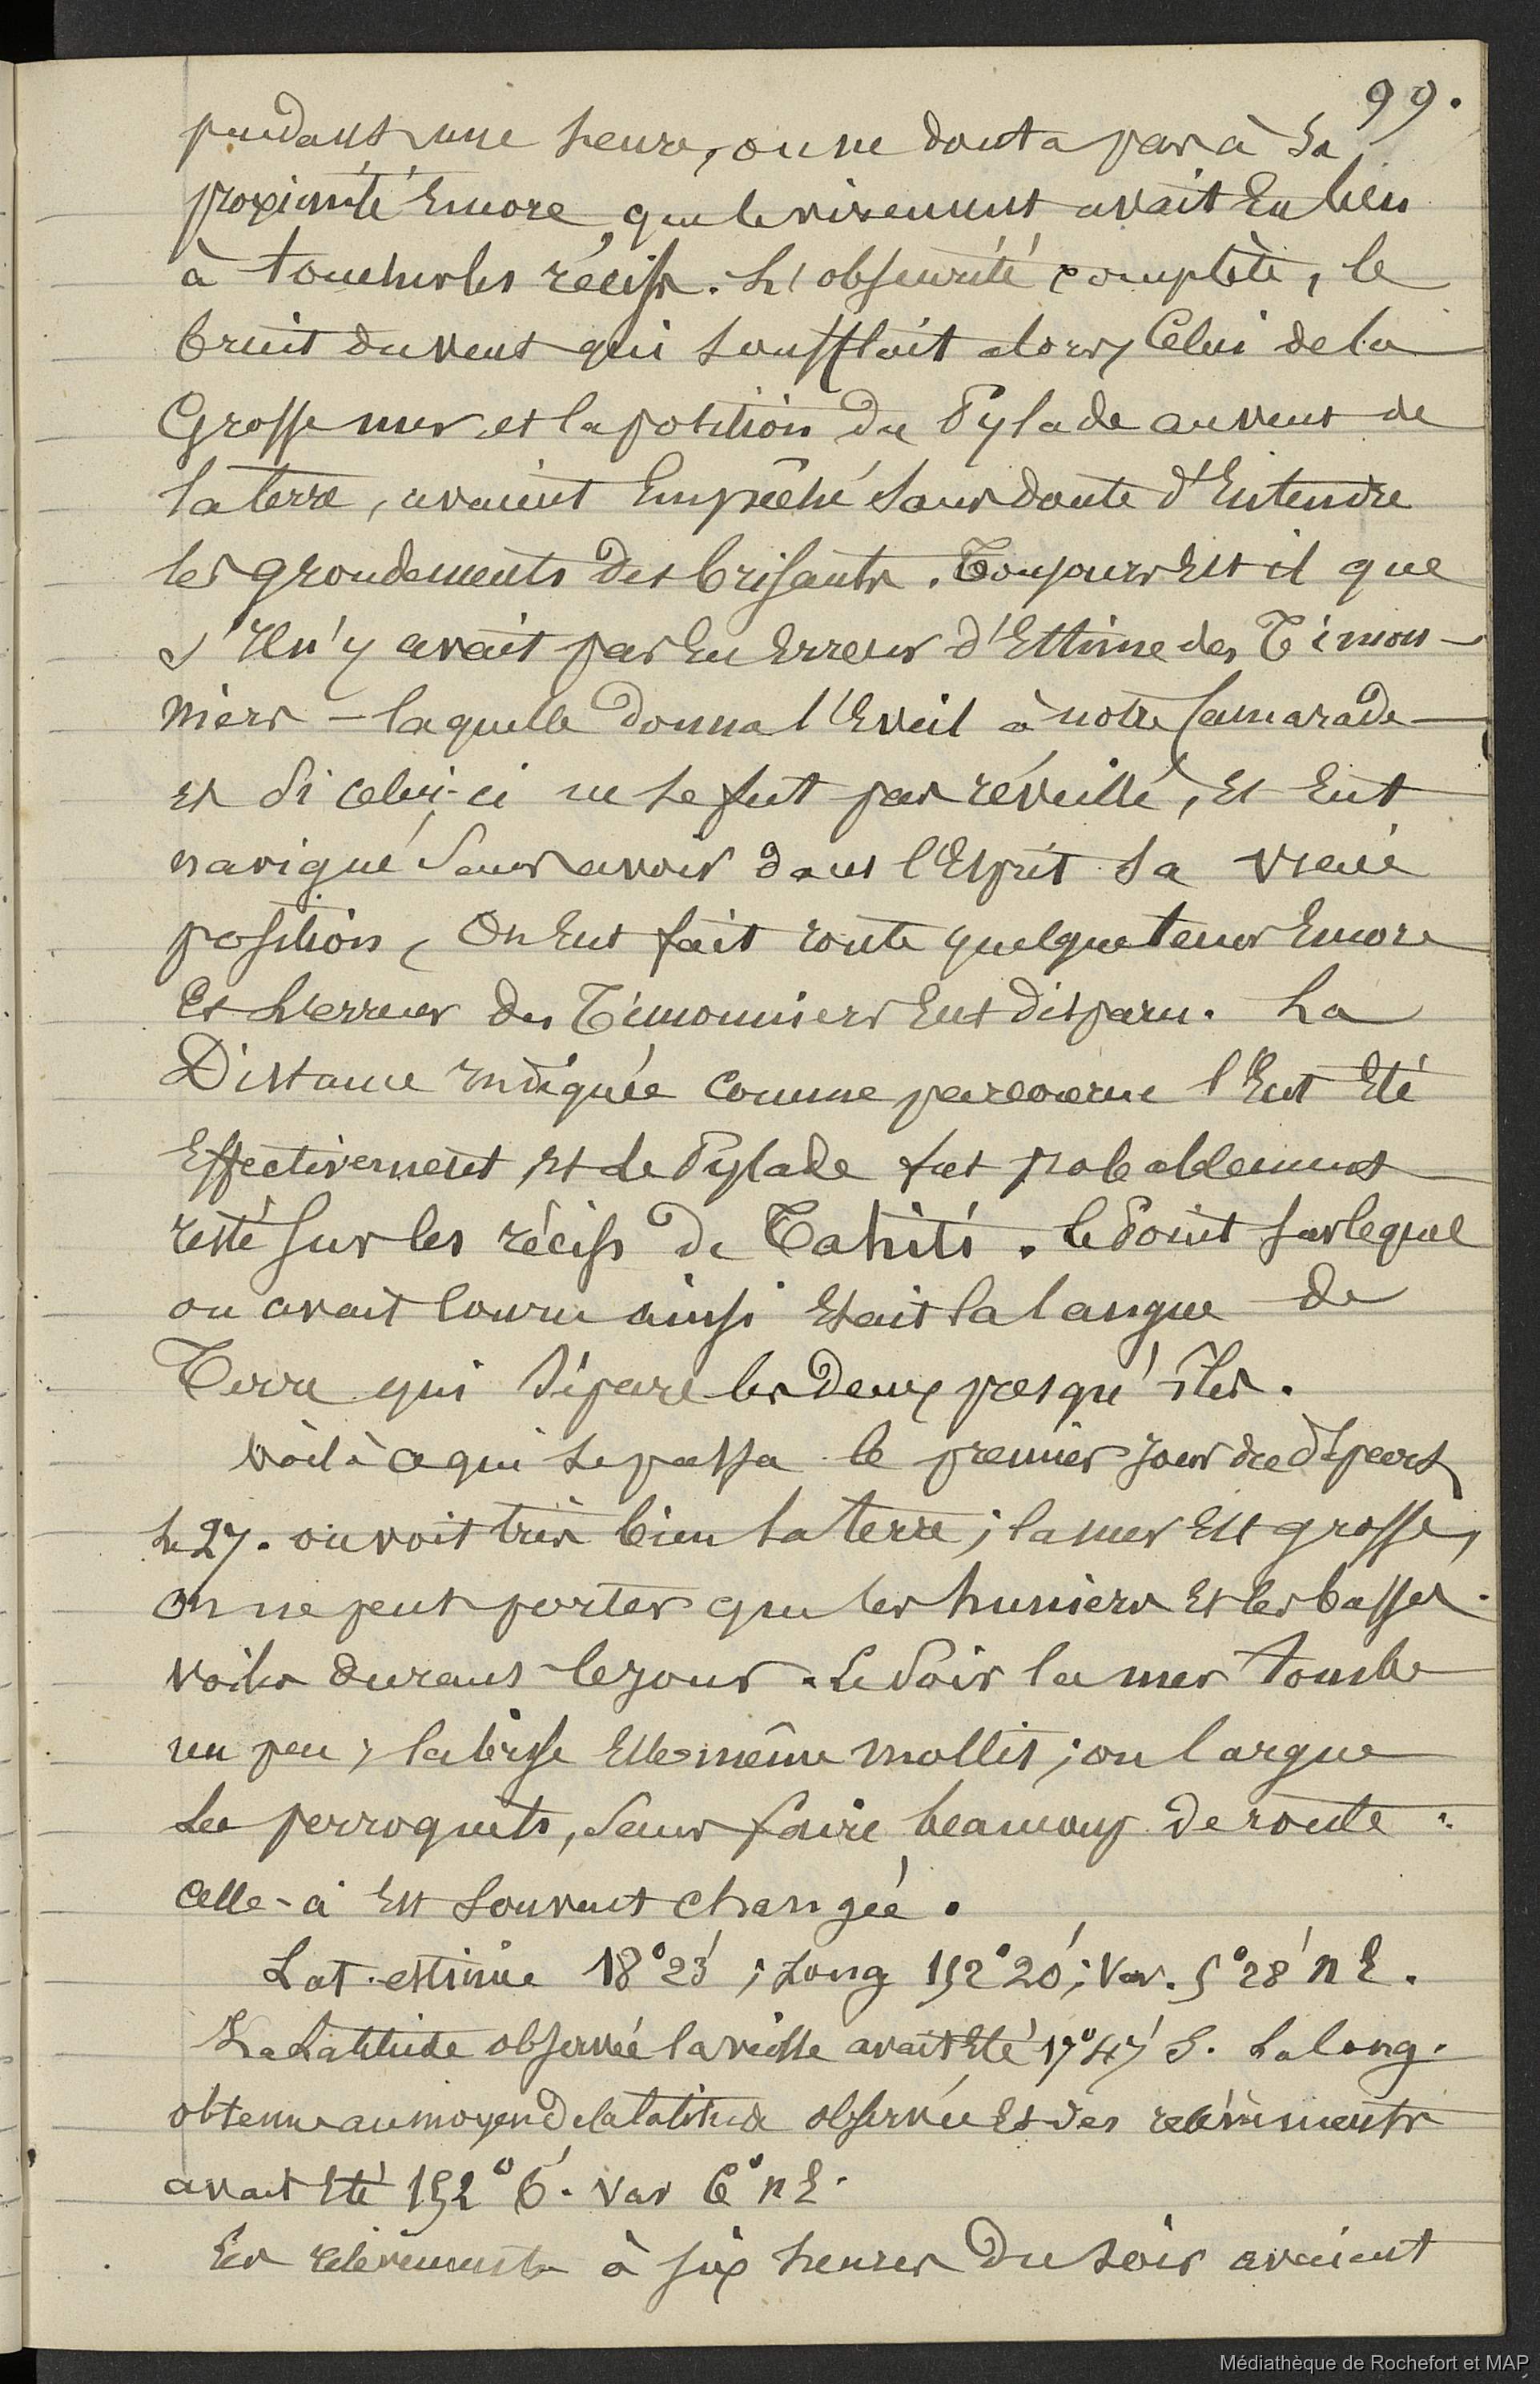 99.
pendant une heure, on ne douta pas à sa
proximité encore, que le virement avait eu lieu
à toucher les récifs. L'obscurité complète, le
bruit du vent qui soufflait alors, celui de la
Grosse mer, et la position du Pylade au vent de
la terre, avaient empêché sans doute d'entendre
les grondements des brisants. Toujours est il que
s'il n'y avait pas eu erreur d'estime des Timon-
niers – laquelle donna l'éveil à notre camarade –
et si celui-ci ne se fut pas réveillé, et eut
navigué sans avoir dans l'esprit sa vraie
position, on eut fait route quelque tems encore
et l'erreur des Timonniers eut disparu. La
Distance indiquée comme parcourue l'eut été
effectivement, et le Pylade fut probablement
resté sur les récifs de Tahiti. le point sur lequel
on avait couru ainsi était la langue de
Terre qui sépare les deux presqu'îles.
voilà ce qui se passa le premier jour du départ
Le 27. on voit très bien la terre; la mer est grosse,
on ne peut porter que les huniers et les basses
voiles durant le jour. Le soir la mer tombe
un peu, la brise elle même mollit; on largue
les perroquets, sans faire beaucoup de route :
celle-ci est souvent changée.
Lat. estimée 18°23'; Long 152°20'; Var. 5°28' n E.
La Latitude observée la veille avait été 17°47' S. La long.
obtenue au moyen de la latitude observée et des relèvements
avait été 152°6'. Var 6° n E.
Les relèvements à six heures du soir avaient
Médiathèque de Rochefort et MAP